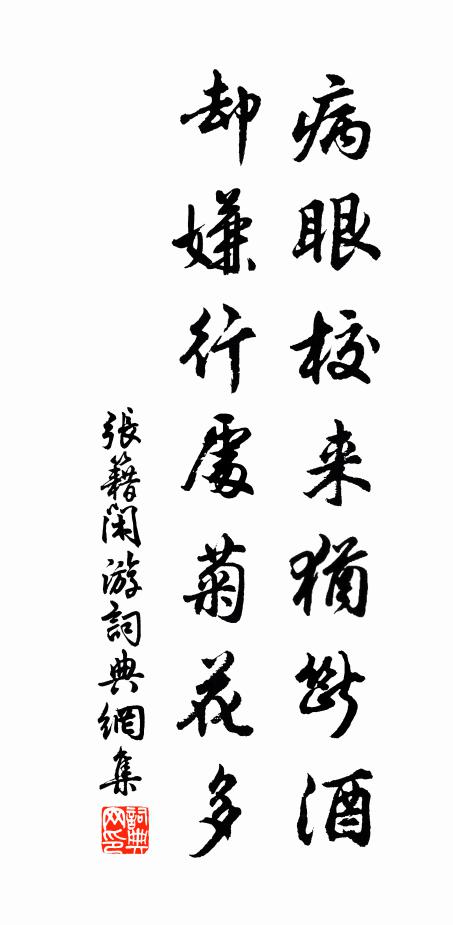 病眼校来猶斷酒
却嫌行處菊花多
張籍閑游詞典網集
詞典网印